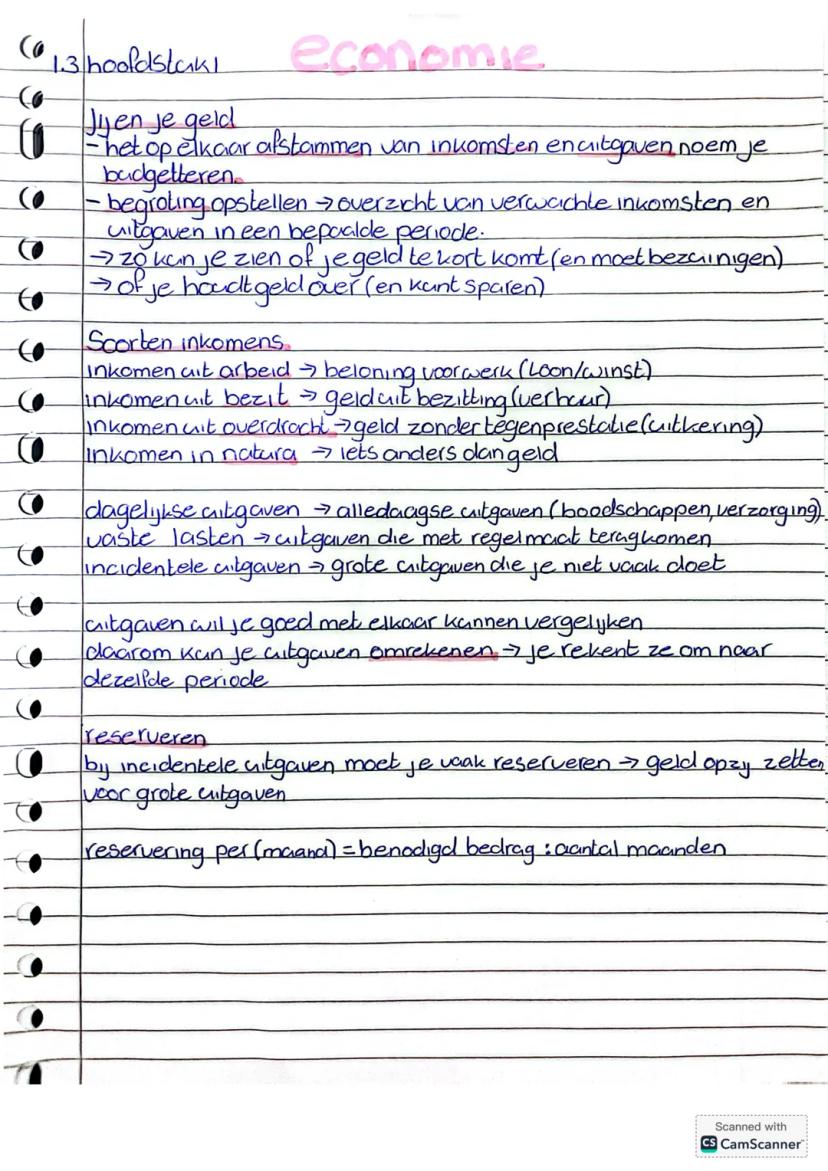 economie
1.3 hoofdstuk 1
Jij en je geld
- het op elkaar afstammen van inkomsten en uitgaven noem je
budgetteren.
- begroting opstellen → overzicht van verwachte inkomsten en
uitgaven in een bepaalde periode.
→ zo kun je zien of je geld te kort komt (en moet bezuinigen)
→ of je houdt geld over (en kunt sparen)
Soorten inkomens
inkomen uit arbeid → beloning voor werk (loon/winst)
inkomen uit bezit → geld uit bezitting (verhuur)
inkomen uit overdracht → geld zonder tegenprestatie (uitkering)
inkomen in natura → iets anders dan geld
dagelijkse uitgaven → alledaagse uitgaven (boodschappen, verzorging)
vaste lasten → uitgaven die met regelmaat terugkomen
incidentele uitgaven → grote uitgaven die je niet vaak doet
uitgaven wil je goed met elkaar kunnen vergelijken
daarom kun je uitgaven omrekenen → je rekent ze om naar
dezelfde periode
reserveren
bij incidentele uitgaven moet je vaak reserveren → geld opzij zetten
voor grote uitgaven
reservering per (maand) = benodigd bedrag : aantal maanden
Scanned with
CS CamScanner